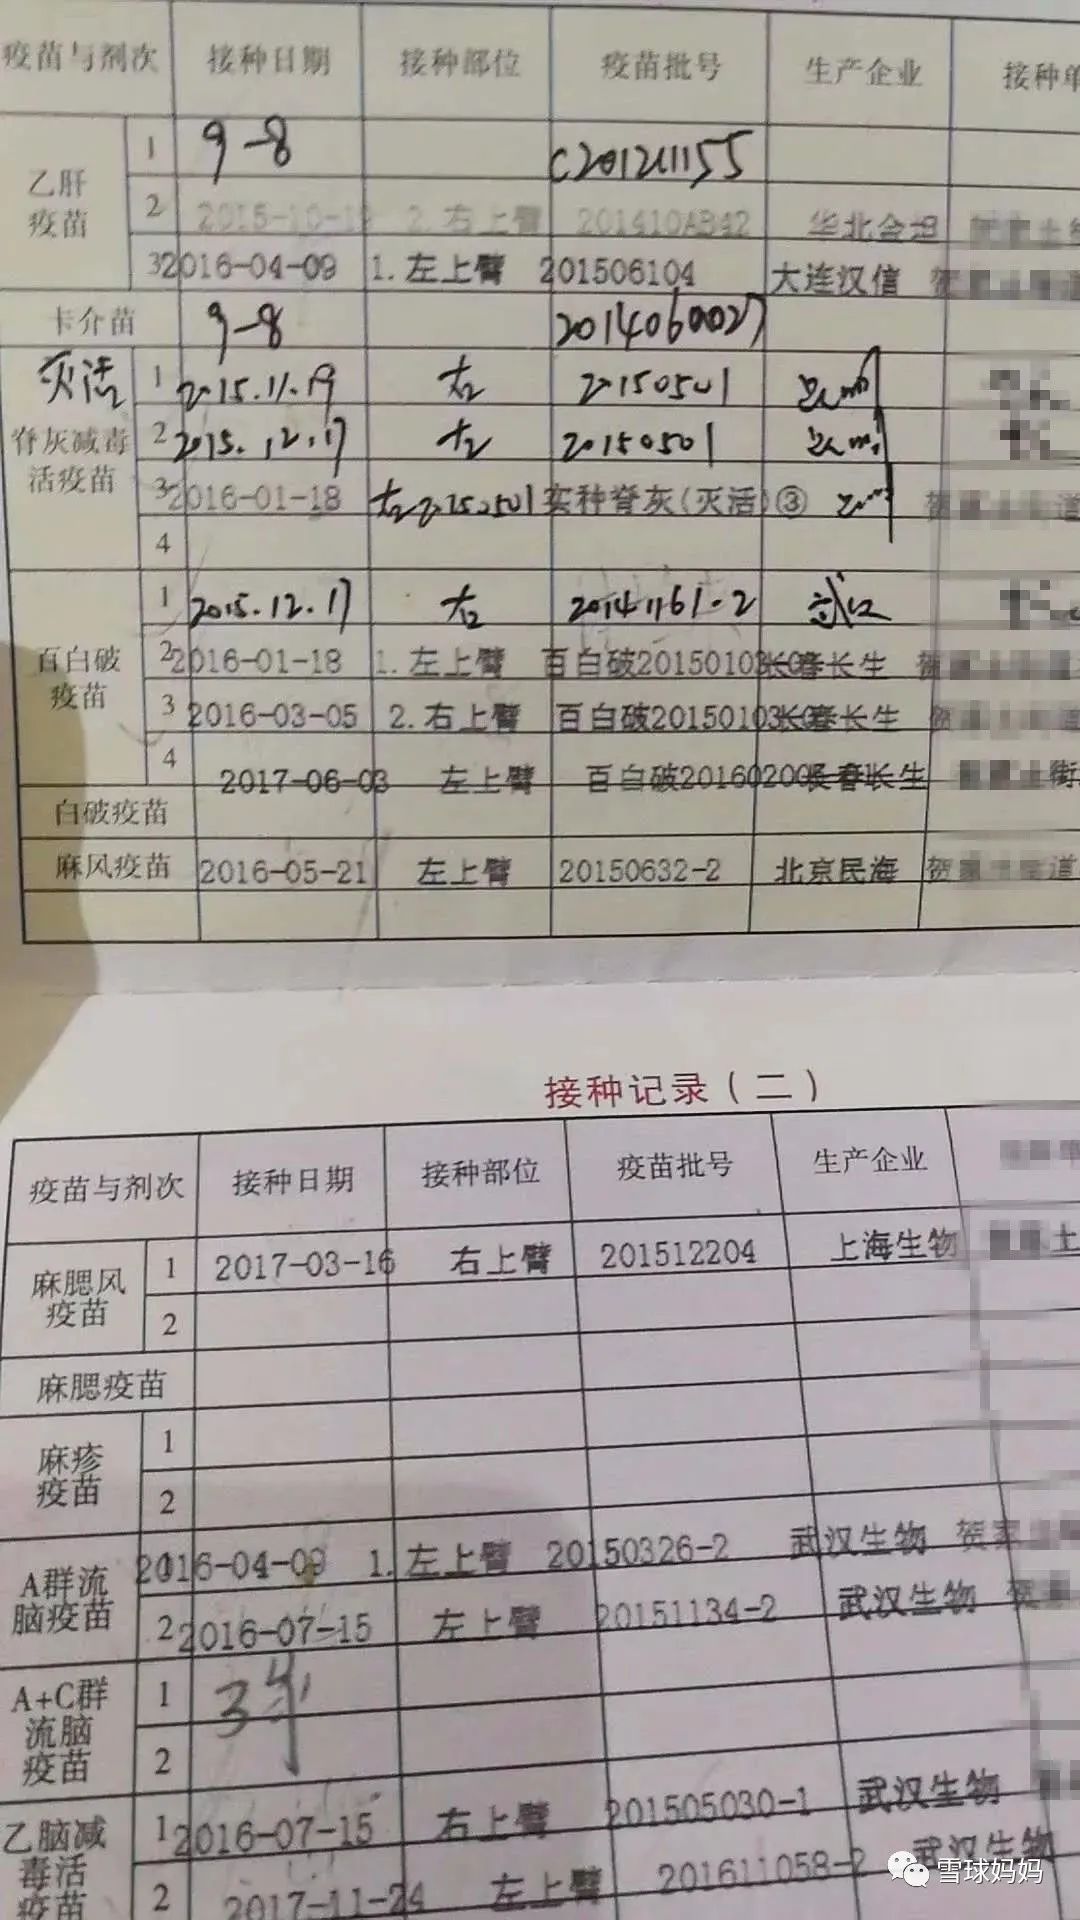 疫苗与剂次 接种日期 接种部位 疫苗批号 生产企业 接种单
乙肝疫苗 1 9-8 C201211155
2 2015-10-1 2.右上臂 201410AB42 华北金坦
3 2016-04-09 1.左上臂 201506104 大连汉信 贺
卡介苗 9-8 2014060027
灭活
脊灰减毒活疫苗 1 2015.11.19 左 20150501
2 2015.12.17 左 20150501
3 2016-01-18 左 20150501 实种脊灰(灭活)③ 贺 道
4
百白破疫苗 1 2015.12.17 左 20141161-2 武汉
2 2016-01-18 1.左上臂 百白破20150103 长春长生 贺
3 2016-03-05 2.右上臂 百白破20150103 长春长生 贺
4 2017-06-03 左上臂 百白破20160200 长春长生 上街
白破疫苗
麻风疫苗 2016-05-21 左上臂 20150632-2 北京民海 贺 道
接种记录(二)
疫苗与剂次 接种日期 接种部位 疫苗批号 生产企业
麻腮风疫苗 1 2017-03-16 右上臂 201512204 上海生物 土
2
麻腮疫苗
麻疹疫苗 1
2
A群流脑疫苗 1 2016-04-09 1.左上臂 20150326-2 武汉生物 贺
2 2016-07-15 左上臂 20151134-2 武汉生物 贺
A+C群流脑疫苗 1 3岁
2
乙脑减毒活疫苗 1 2016-07-15 右上臂 201505030-1 武汉生物
2 2017-11-24 左上臂 201611058-2 武汉生物
雪球妈妈